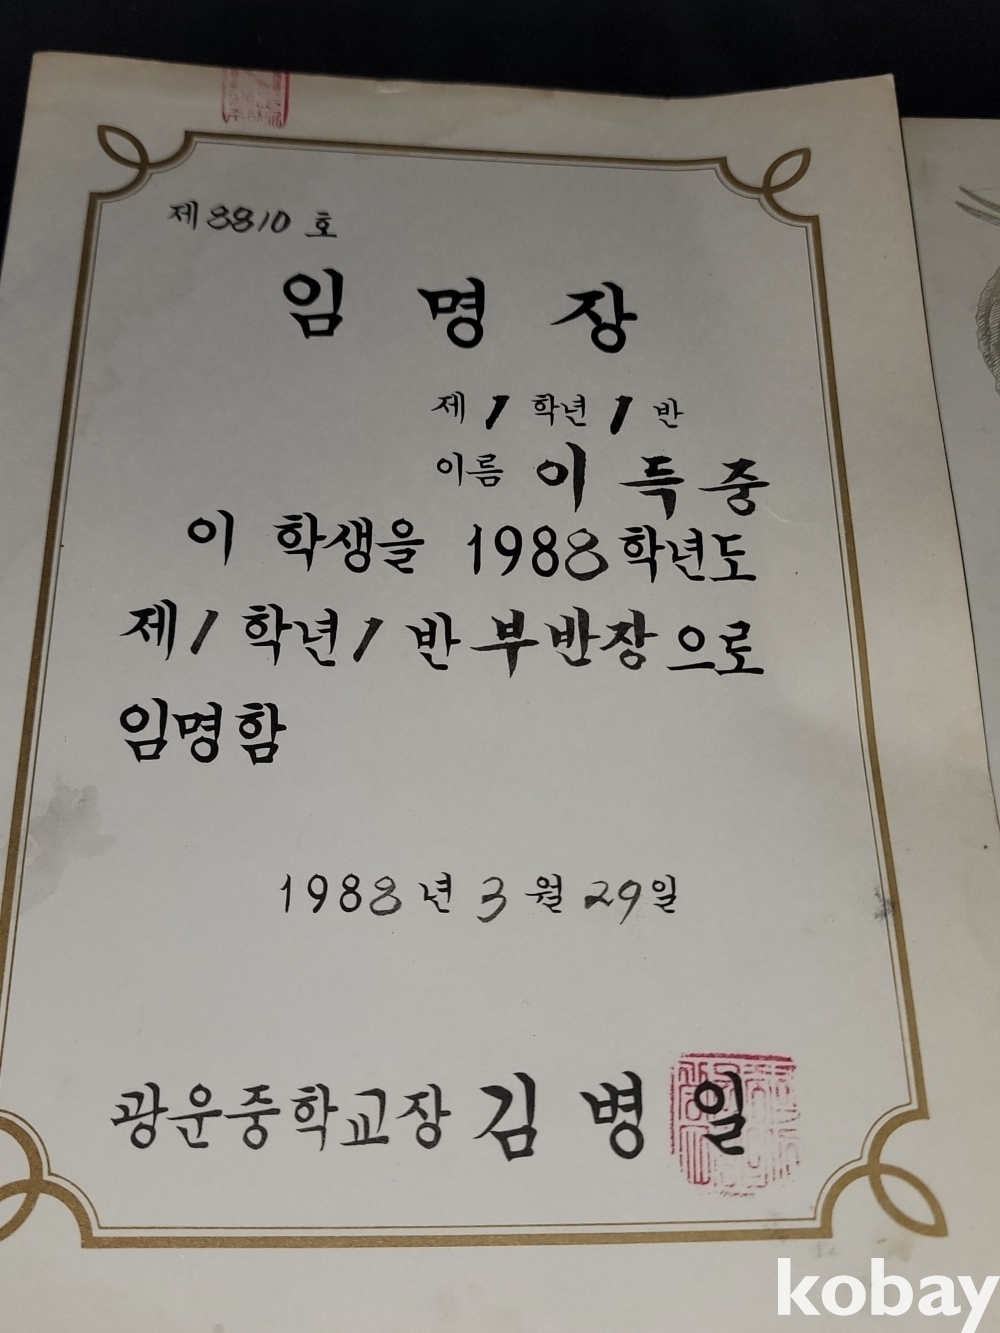 제8810호
임명장
제1학년1반
이름 이득중
이 학생을 1988학년도
제1학년1반 부반장으로
임명함
1988년 3월 29일
광운중학교장 김병일
kobay